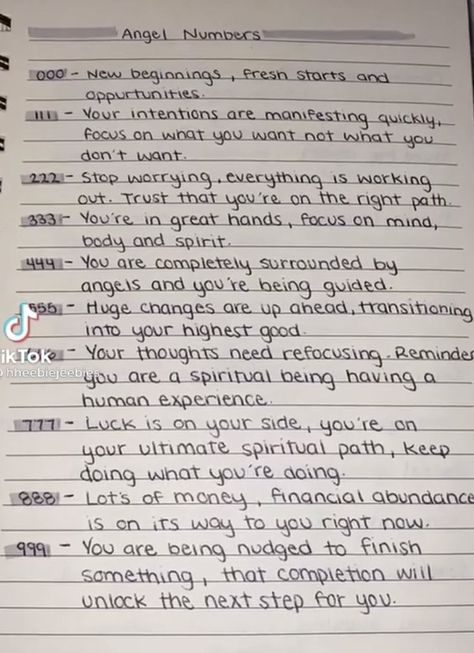 Angel Numbers
000 - New beginnings, fresh starts and
oppurtunities.
111 - Your intentions are manifesting quickly,
focus on what you want not what you
don't want.
222 - Stop worrying, everything is working
out. Trust that you're on the right path.
333 - You're in great hands, focus on mind,
body and spirit.
444 - You are completely surrounded by
angels and you're being guided.
555 - Huge changes are up ahead, transitioning
into your highest good.
- Your thoughts need refocusing. Reminder
you are a spiritual being having a
human experience.
777 - Luck is on your side, you're on
your ultimate spiritual path, keep
doing what you're doing.
888 - Lot's of money, financial abundance
is on its way to you right now.
999 - You are being nudged to finish
something, that completion will
unlock the next step for you.
ikTok
hheebiejeebies